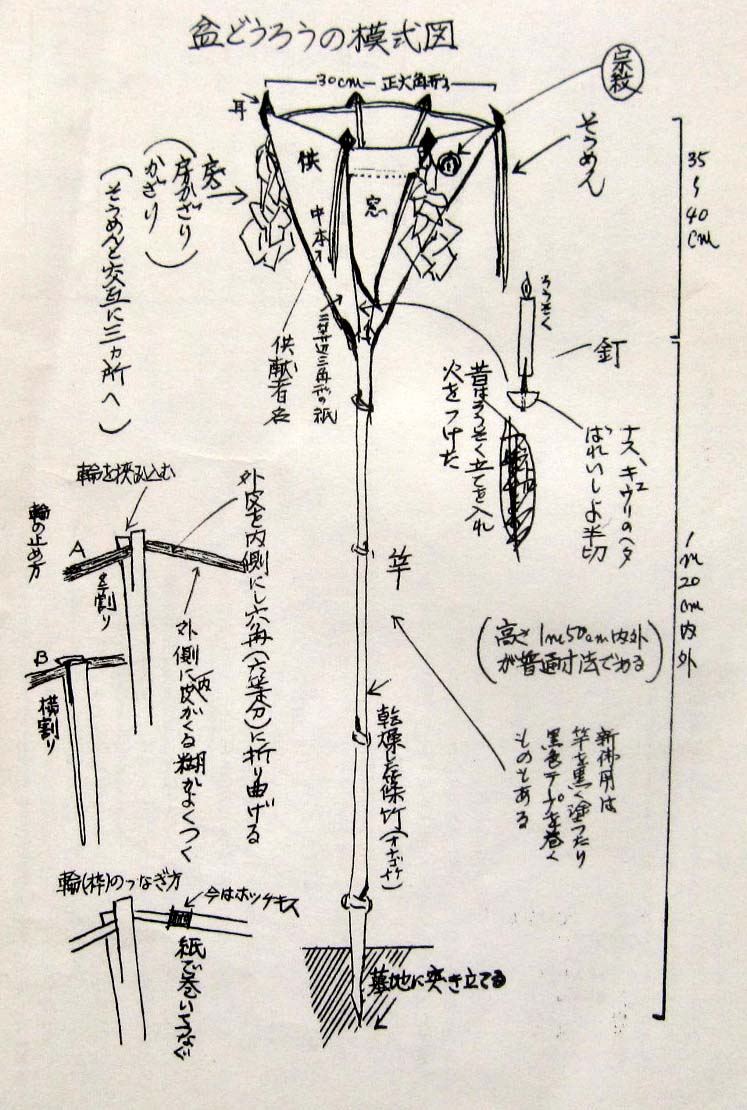 盆どうろうの模式図
30cm 正六角形
宗紋
耳
そうめん
房
(房かざり
かざり)
(そうめんと交互に三カ所へ)
供
中本
窓
供献者名
三角形の紙
35
〜
40
cm
ろうそく
釘
昔はろうそく立てを入れ
火をつけた
ナス、キュウリのヘタ
ばれいしよ半切
輪を挟み込む
輪の止め方
A
B
横割り
外皮を内側にし六角(六等分)に折り曲げる
外側に内皮がくる糊がよくつく
竿
1m20cm内外
(高さ1m50cm内外
が普通寸法である)
新佛用は
竿を黒く塗ったり
黒色テープを巻く
ものもある
乾燥した篠竹(オナゴ竹)
輪(枠)のつなぎ方
今はホッチキス
紙で巻いてつなぐ
墓地に突き立てる